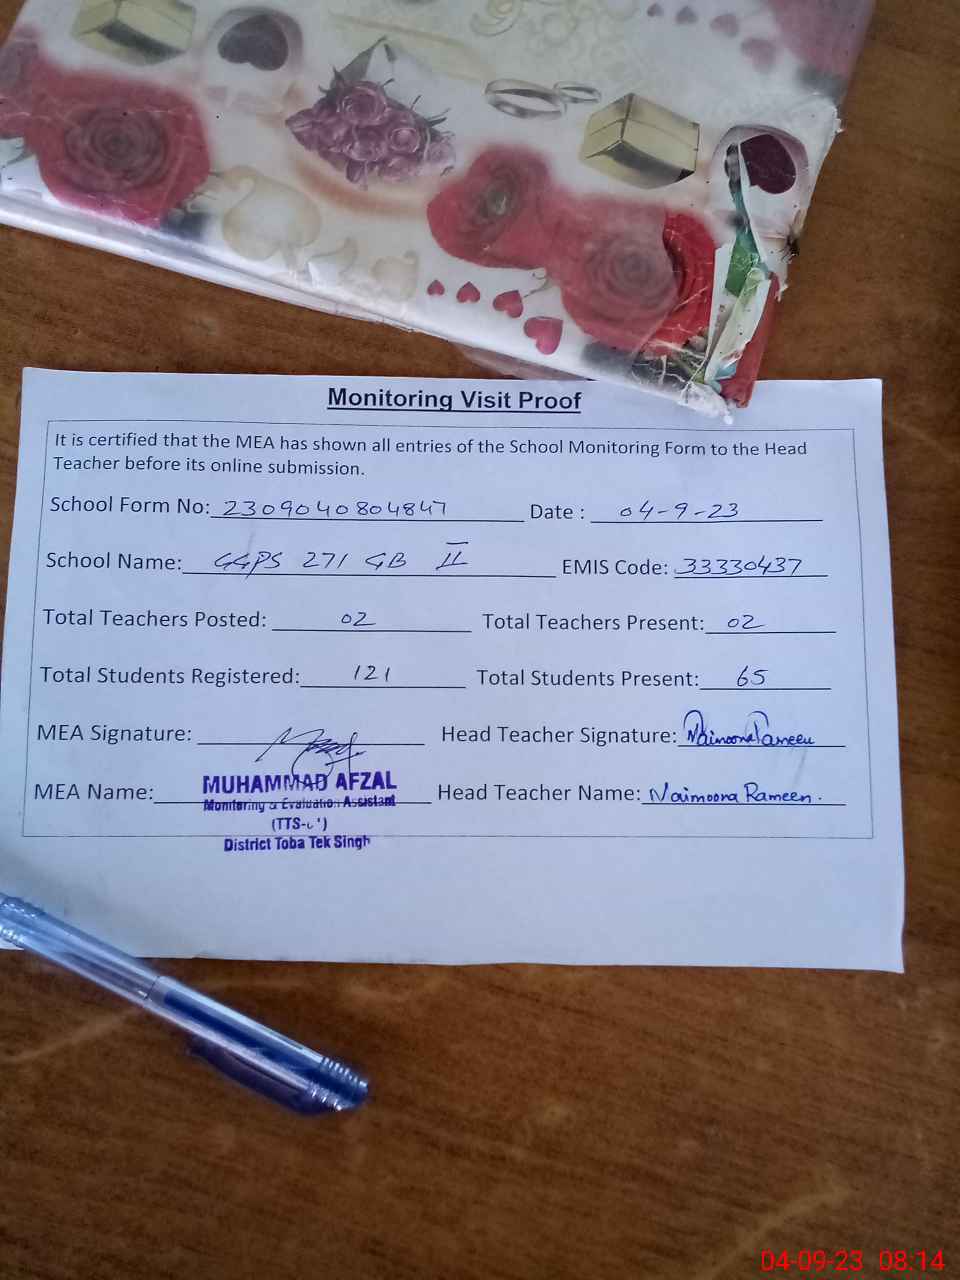 Monitoring Visit Proof
It is certified that the MEA has shown all entries of the School Monitoring Form to the Head
Teacher before its online submission.
School Form No: 2309040804847 Date : 04-9-23
School Name: GGPS 271 GB II EMIS Code: 33330437
Total Teachers Posted: 02 Total Teachers Present: 02
Total Students Registered: 121 Total Students Present: 65
MEA Signature: Head Teacher Signature: Naimoona Rameen
MEA Name: MUHAMMAD AFZAL Head Teacher Name: Naimoona Rameen.
Monitoring & Evaluation Assistant
District Toba Tek Singh
04-09-23 08:14